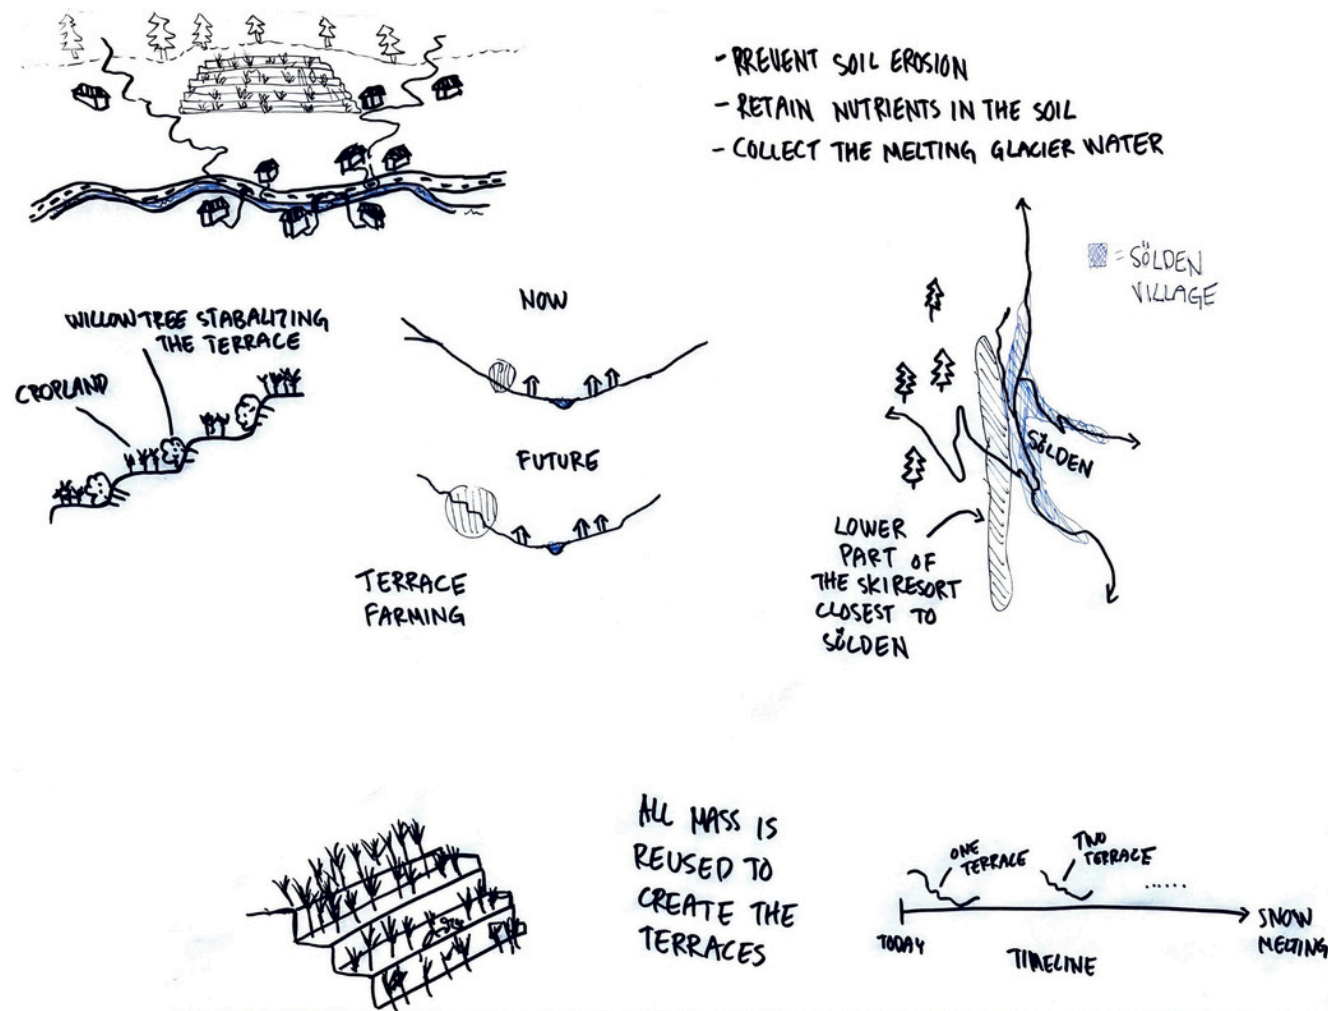 - PREVENT SOIL EROSION
- RETAIN NUTRIENTS IN THE SOIL
- COLLECT THE MELTING GLACIER WATER
= SÖLDEN
VILLAGE
WILLOW TREE STABALIZING
THE TERRACE
CROPLAND
NOW
FUTURE
TERRACE
FARMING
SÖLDEN
LOWER
PART OF
THE SKIRESORT
CLOSEST TO
SÖLDEN
ALL MASS IS
REUSED TO
CREATE THE
TERRACES
ONE
TERRACE
TWO
TERRACE
......
TODAY
TIMELINE
SNOW
MELTING